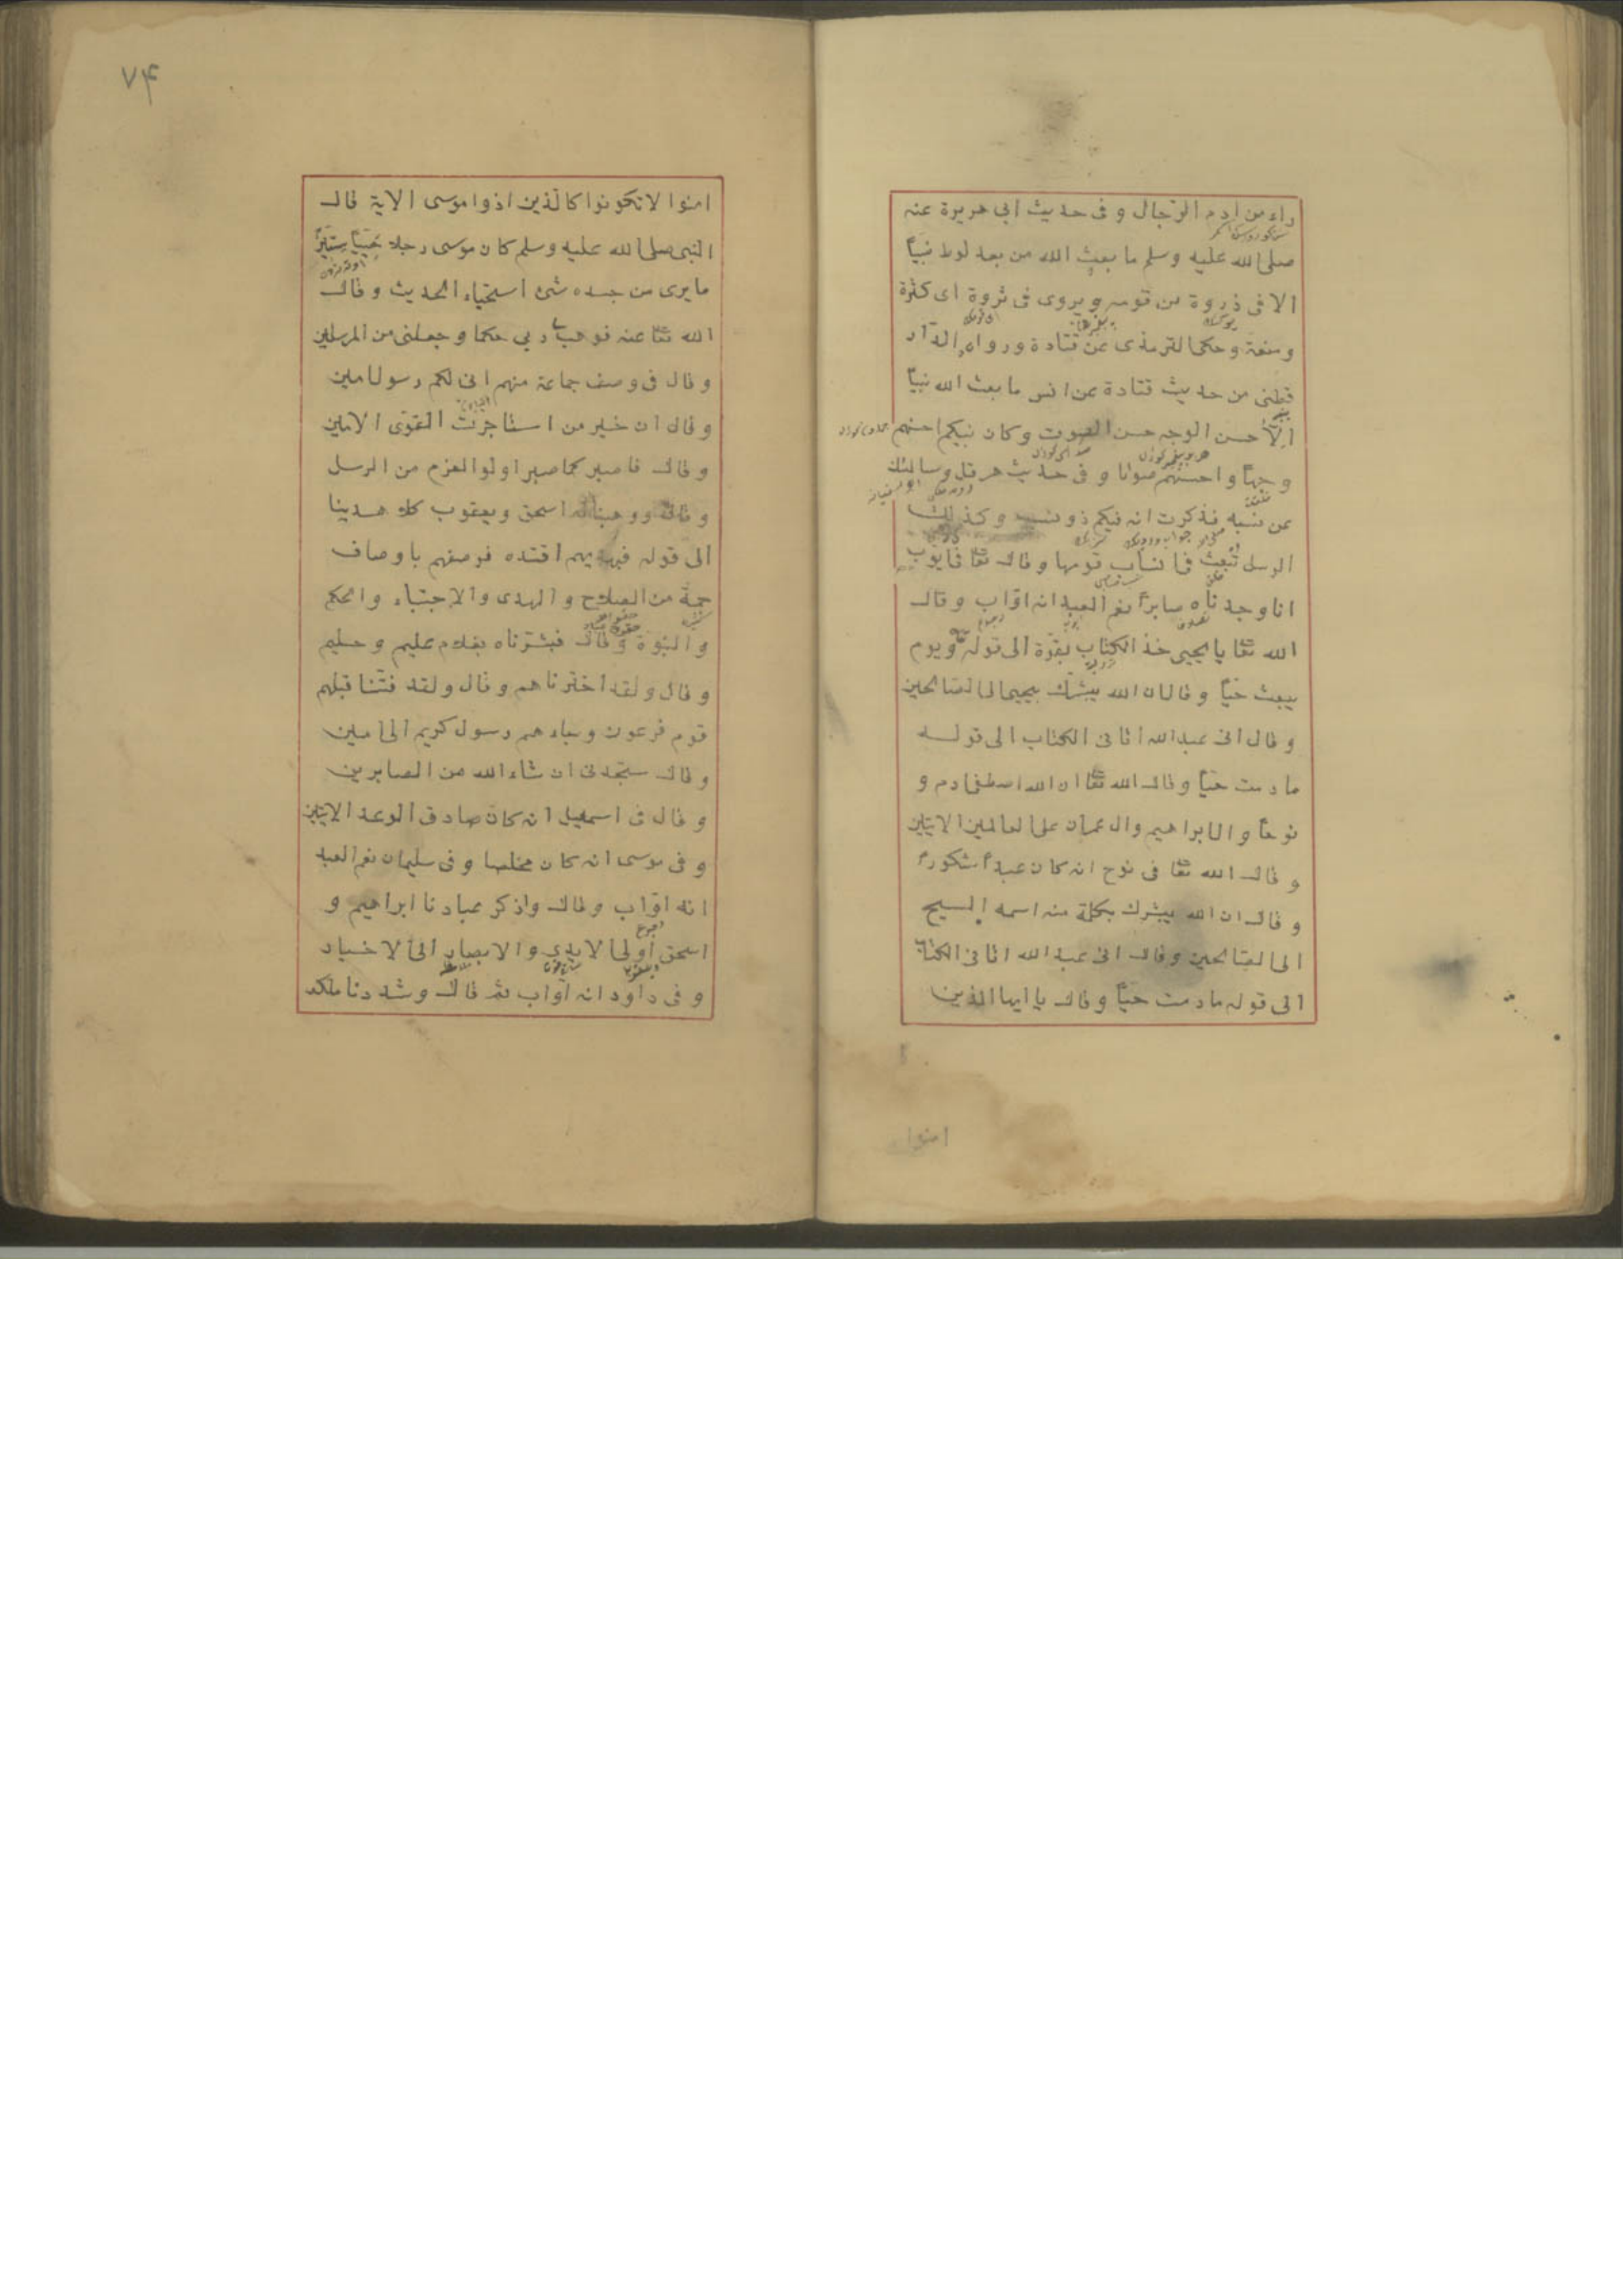 راء من ادم الرجال و فى حديث ابى هريرة عنه
صلى الله عليه وسلم ما بعث الله من بعد لوط نبيًّا
الا فى ذروة من قومه ويروى فى ثروة اى كثرة
ومنعة وحكى الترمذى عن قتادة ورواه الدار
قطنى من حديث قتادة عن انس ما بعث الله نبيًّا
الا حسن الوجه حسن الصوت وكان نبيكم احسنهم
وجهًا واحسنهم صوتا و فى حديث هرقل وسالتك
عن نسبه فذكرت انه فيكم ذو نسب وكذلك
الرسل تبعث فى انساب قومها وقال تعا فى ايوب
انا وجدناه صابرًا نعم العبد انه اوّاب وقال
الله تعا يا يحيى خذ الكتاب بقوّة الى قوله ويوم
يبعث حيًّا وقال ان الله يبشرك بيحيى الى الصالحين
وقال انى عبد الله اتانى الكتاب الى قوله
ما دمت حيًّا وقال الله تعا ان الله اصطفى ادم و
نوحًا وال ابراهيم وال عمران على العالمين الايتين
وقال الله تعا فى نوح انه كان عبدًا شكورًا
وقال ان الله يبشرك بكلمة منه اسمه المسيح
الى الصالحين وقال انى عبد الله اتانى الكتاب
الى قوله ما دمت حيًّا وقال يا ايها الذين
امنوا
٧۴
امنوا لا تكونوا كالذين اذوا موسى الاية قال
النبى صلى الله عليه وسلم كان موسى رجلا حييًّا ستيرًا
ما يرى من جسده شئ استحياء الحديث وقال
الله تعا عنه فوهب لى ربى حكما وجعلنى من المرسلين
وقال فى وصف جماعة منهم انى لكم رسول امين
وقال ان خير من استاجرت القوى الامين
وقال فاصبر كما صبر اولوا العزم من الرسل
وقال ووهبنا له اسحق ويعقوب كلا هدينا
الى قوله فبهديهم اقتده فوصفهم باوصاف
جمة من الصلاح والهدى والاجتباء والحكم
والنبوة وقال فبشرناه بغلام عليم وحليم
وقال ولقد اخترناهم وقال ولقد فتنا قبلهم
قوم فرعون وجاءهم رسول كريم الى امين
وقال ستجدنى ان شاء الله من الصابرين
وقال فى اسمعيل انه كان صادق الوعد الايتين
وفى موسى انه كان مخلصا وفى سليمان نعم العبد
انه اوّاب وقال واذكر عبادنا ابراهيم و
اسحق اولى الايدى والابصار الى الاخيار
وفى داود انه اوّاب ثم قال وشددنا ملكه